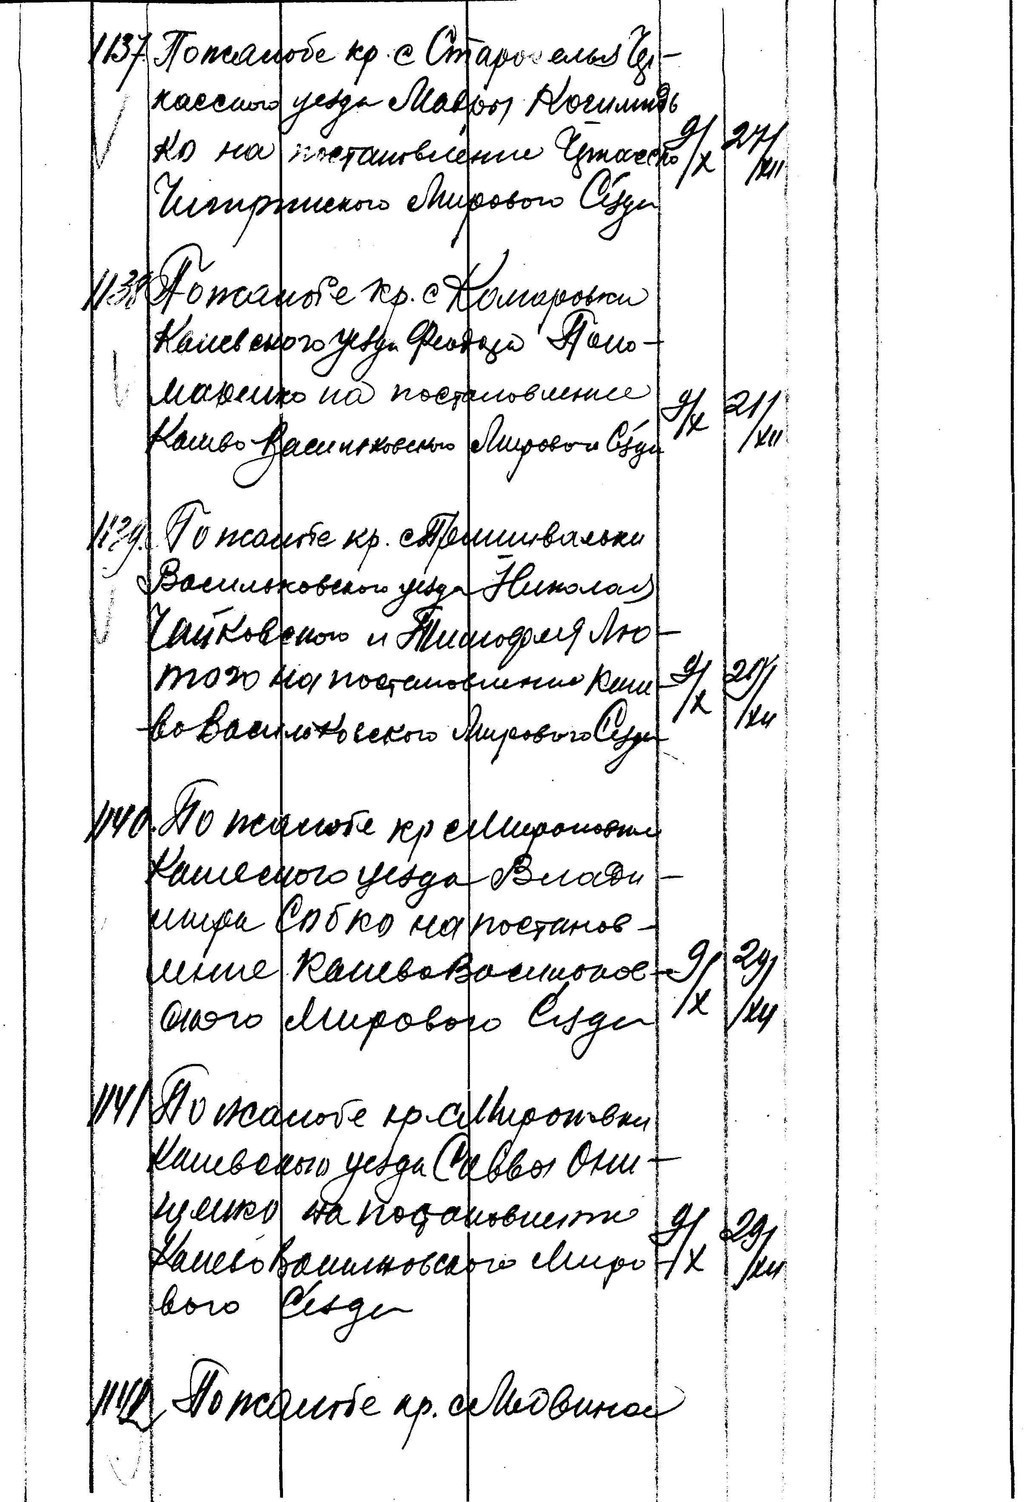 1137 По жалобе кр. с Староселья Чер-
касского уезда Мавры
ко на постановление Черкасско 9/X 27/XII
Чигиринского Мирового С'езда
1138 По жалобе кр. с Комаровки
Каневского уезда Феодора Поно-
маренко на постановление
Канево Васильковского Мирового С'езда 9/X 21/XII
1139. По жалобе кр. с
Васильковского уезда Николая
Чайковского и Тимофея Лю-
того на постановление Кане- 9/X
во Васильковского Мирового С'езда
1140. По жалобе кр с Мироновки
Каневского уезда Влади-
мира Собко на постанов-
ление Канево Васильков- 9/X 29/XII
ского Мирового С'езда
1141 По жалобе кр. с Мироновки
Каневского уезда Саввы Они-
щенко на постановление
Канево Васильковского Миро- 9/X 29/XII
вого С'езда
1142 По жалобе кр. с Медвина